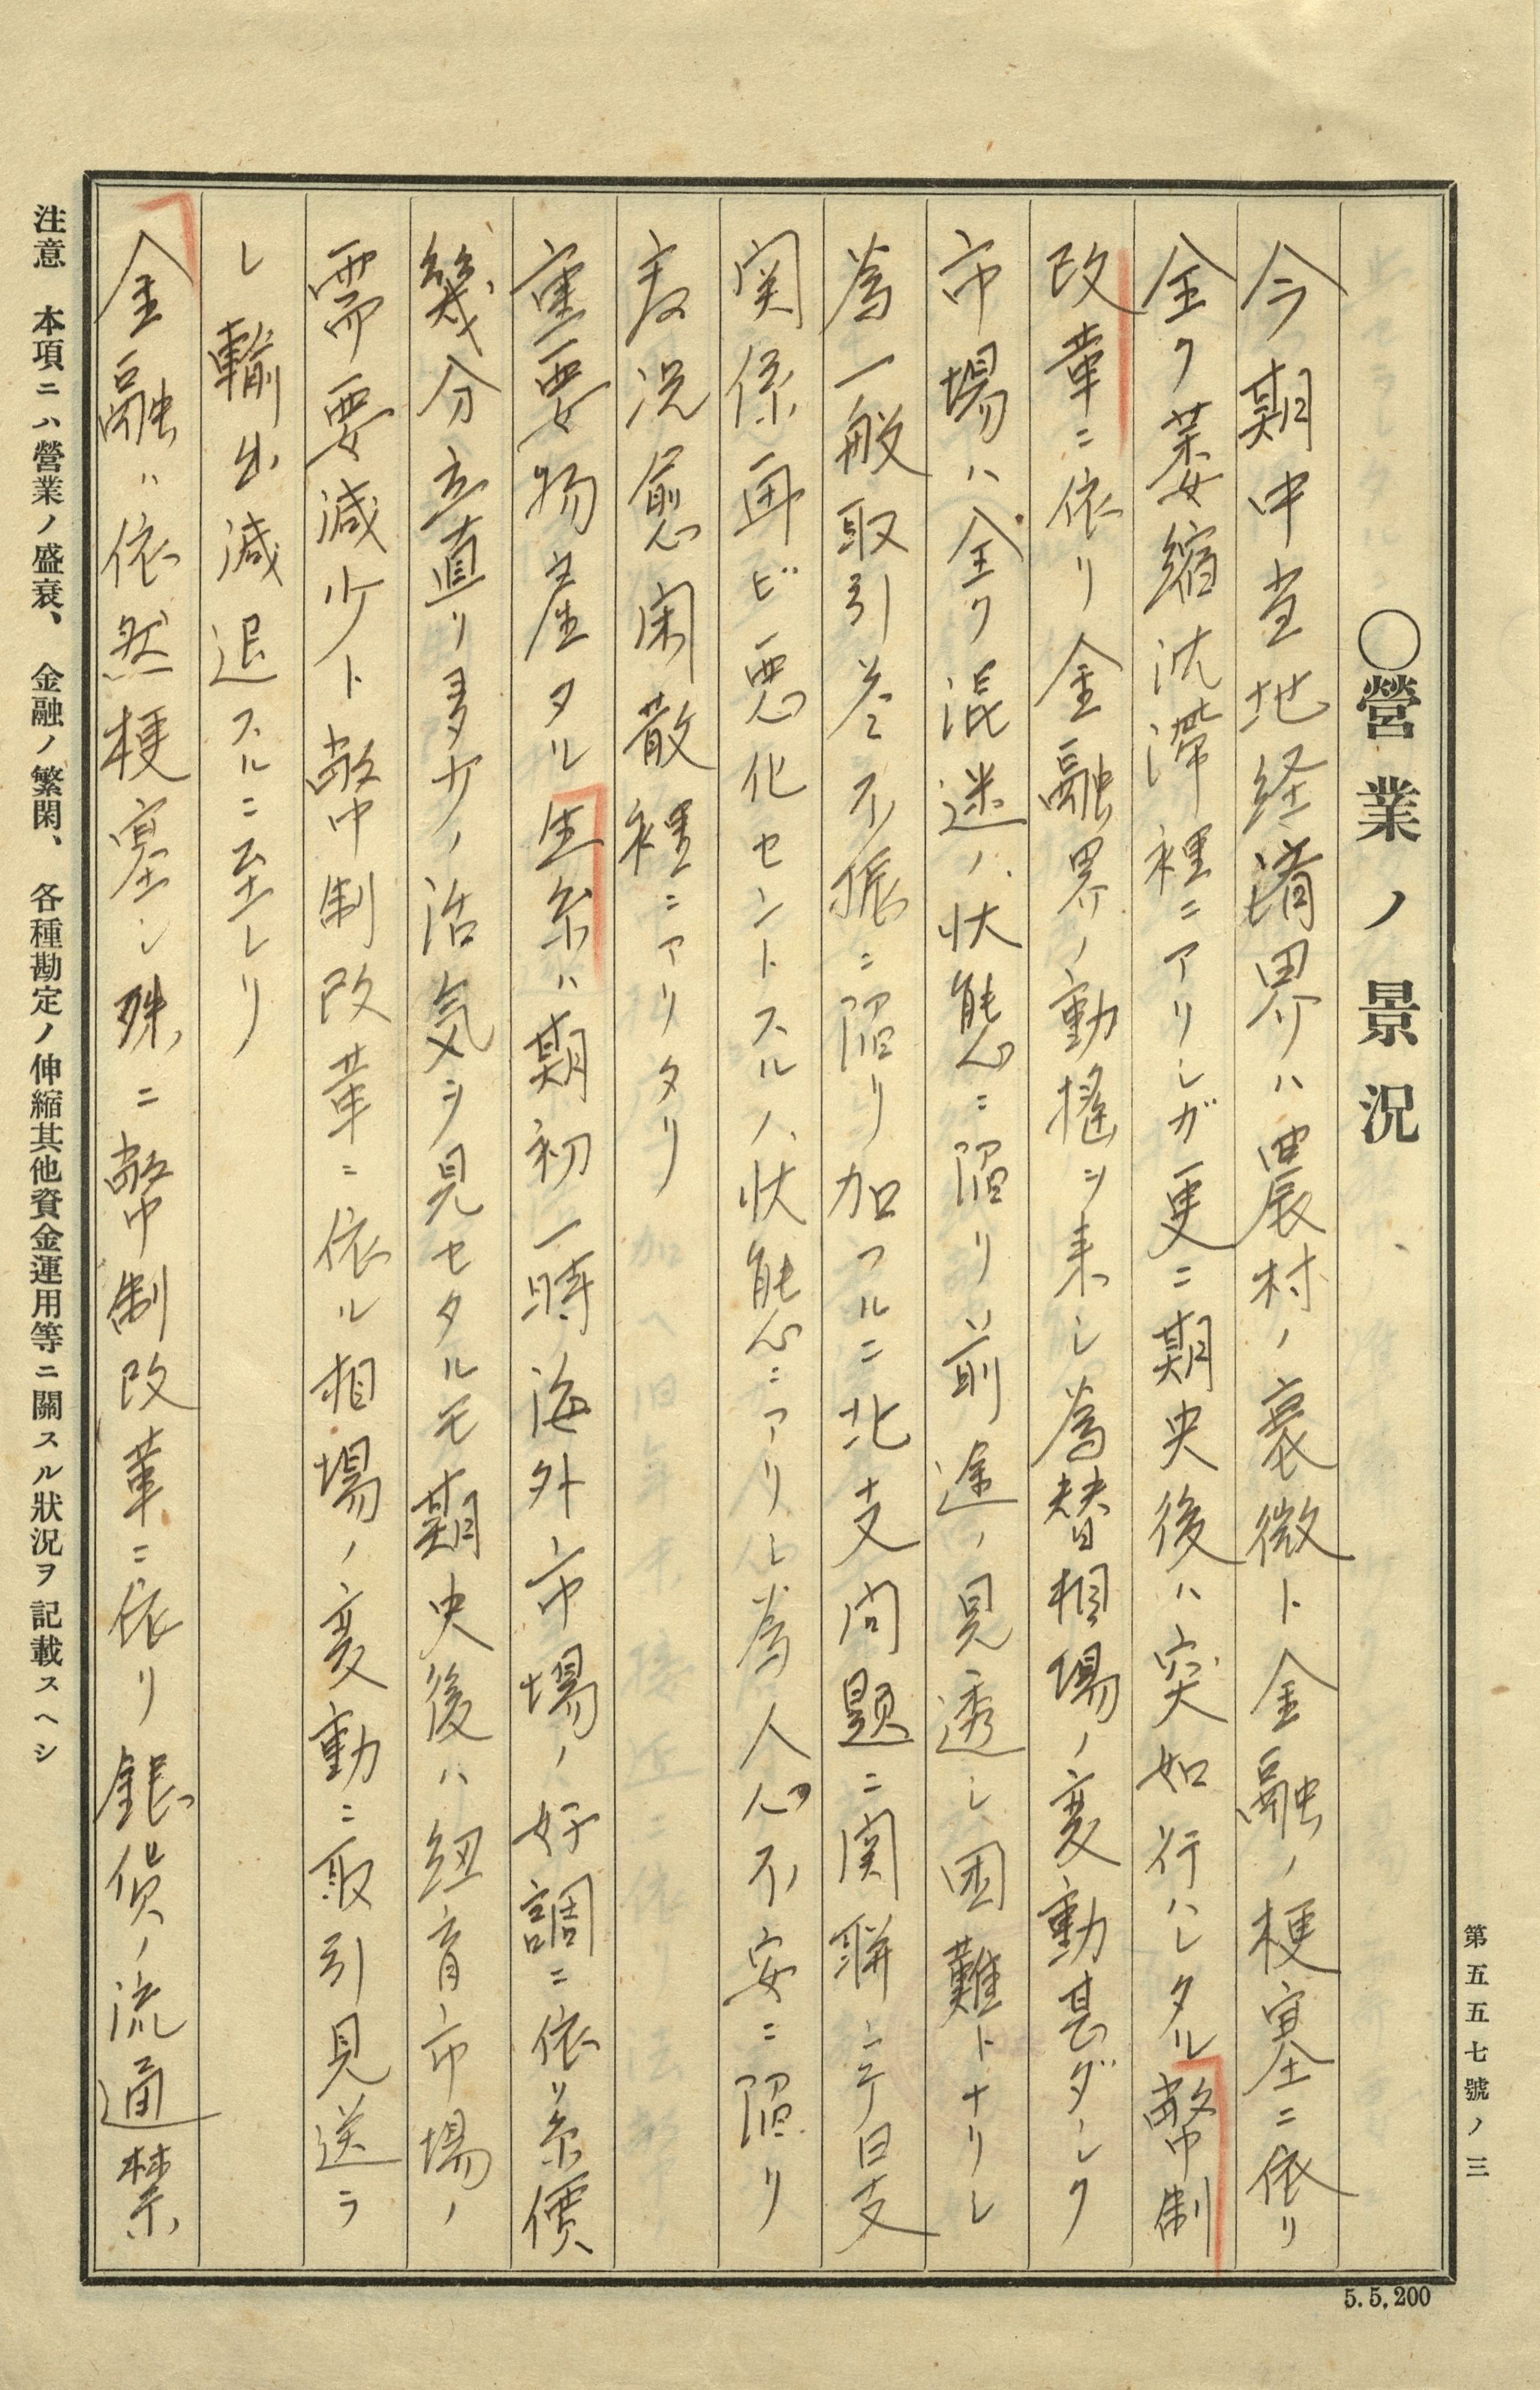 第五五七號ノ三
○營業ノ景況
今期中当地経済界ハ農村ノ衰微ト金融ノ梗塞ニ依リ
全ク萎縮沈滞裡ニアリシガ更ニ期央後ハ突如行ハレタル幣制
改革ニ依リ金融界ノ動揺ヲ来シ為替相場ノ変動甚ダシク
市場ハ全ク混迷ノ状態ニ陥リ前途ノ見透シ困難トナリシ
為一般取引益々不振ニ陥リ加フルニ北支問題ニ関聯シテ日支
関係再ビ悪化セントスルノ状態ニアリシ為人心不安ニ陥リ
商況愈閑散裡ニアリタリ
重要物産タル生糸ハ期初一時海外市場ノ好調ニ依リ糸價
幾分立直リ多少ノ活気ヲ見セタルモ期央後ハ紐育市場ノ
需要減少ト幣制改革ニ依ル相場ノ変動ニ取引見送ラ
レ輸出減退スルニ至レリ
金融ハ依然梗塞シ殊ニ幣制改革ニ依リ銀貨ノ流通禁
注意 本項ニハ營業ノ盛衰、金融ノ繁閑、各種勘定ノ伸縮其他資金運用等ニ關スル狀況ヲ記載スヘシ
5.5.200